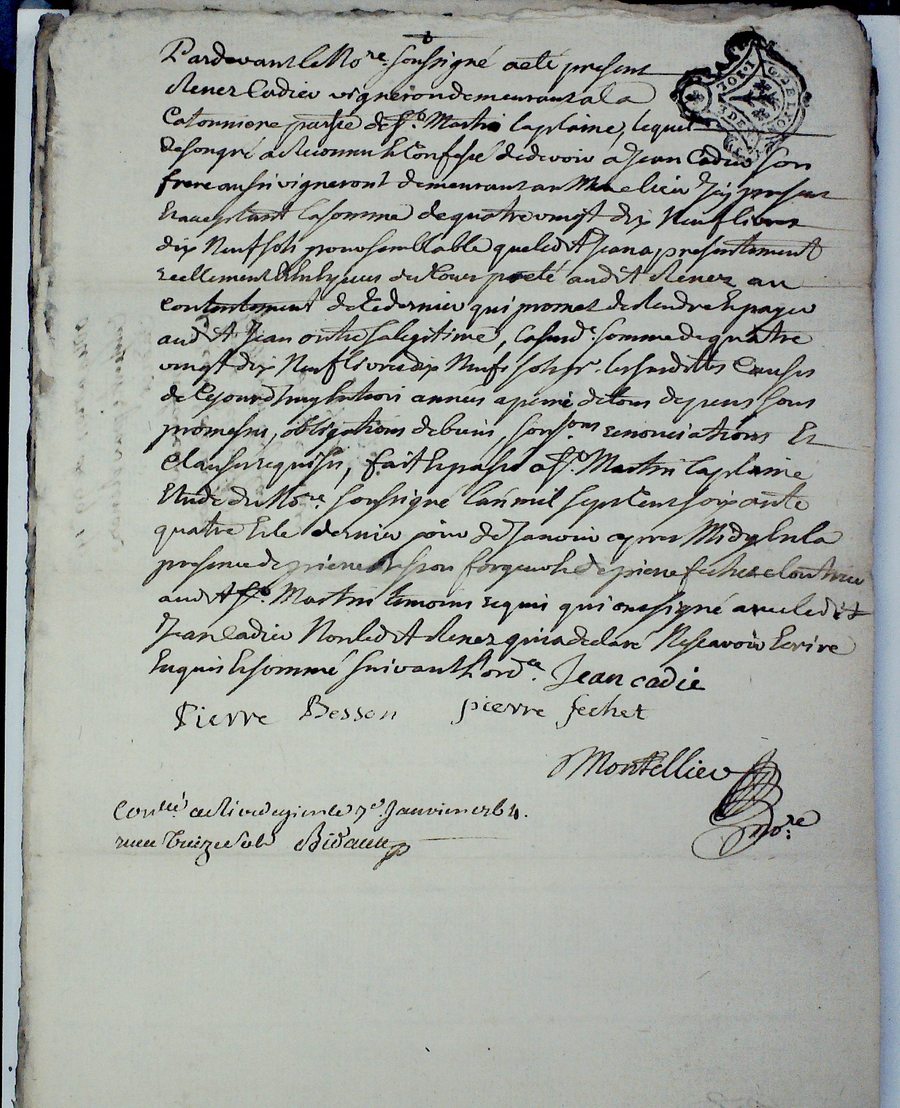 Pardevant le No.re soussigné a eté present
Renez Cadieu vigneron demeurant a la
Catonniere parsse de St. Martin laplaine, lequel
de son gré a Reconnu & Confessé de devoir a Jean Cadieu son
frere aussi vigneront demeurant au Meme lieu Icy present
Et acceptant la somme de quatre vingt dix Neuf livres
dix Neuf sols pour semblable que led.t Jean a presentement
reellement & en Especes du Cours preté aud.t Renez au
contentement de Ce dernier qui promet de Rendre & payer
aud.t Jean outre sa legitime, lasusd.e somme de quatre
vingt dix Neuf livres dix Neuf sols pr. les susdittes Causes
de Ce jourd'huy En trois années a peine de tous depens sous
promesses, obligations de biens, soumons renonciations Et
Clauses requises, fait & passé a St. Martin laplaine
Etude du No.re soussigné lan mil sept Cent soixante
quatre & le dernier jour de Janvier apres Midy En la
presence de pierre Besson forgeur & de pierre fechet cloutrier
aud.t St. Martin temoins requis qui ont signé avec led.t
Jean Cadieu Non led.t Renez qui a declaré Ne scavoir Ecrire
Enquis & sommé suivant L'ord.ce Jean cadie
Pierre Besson pierre fechet
Montellier
no.re
Conllé a Rivedegier le 7e. 1764.
receu treize sols